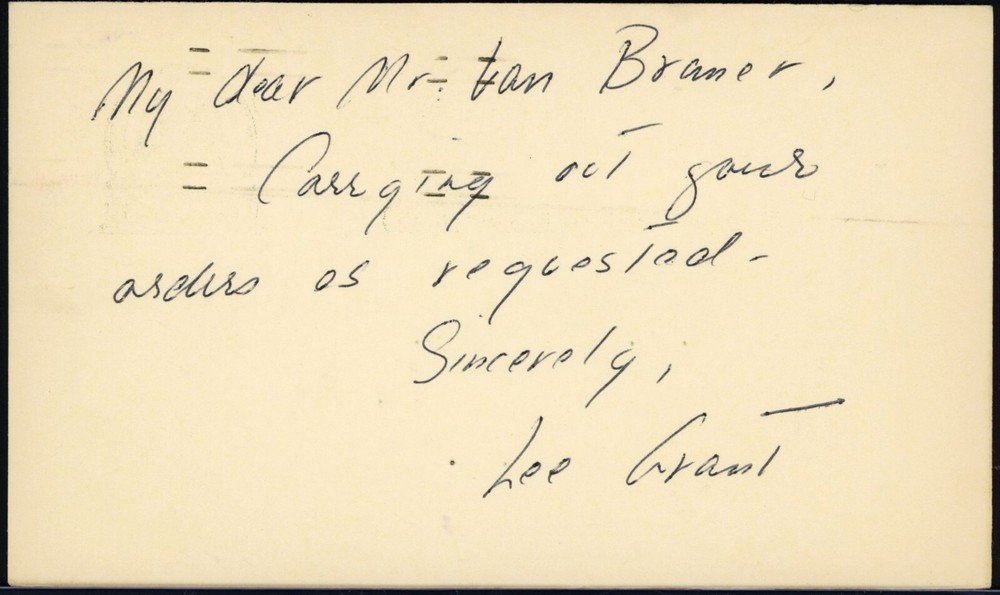 My dear Mr. Van Bramer,
Carrying out your
orders as requested -
Sincerely,
Lee Grant